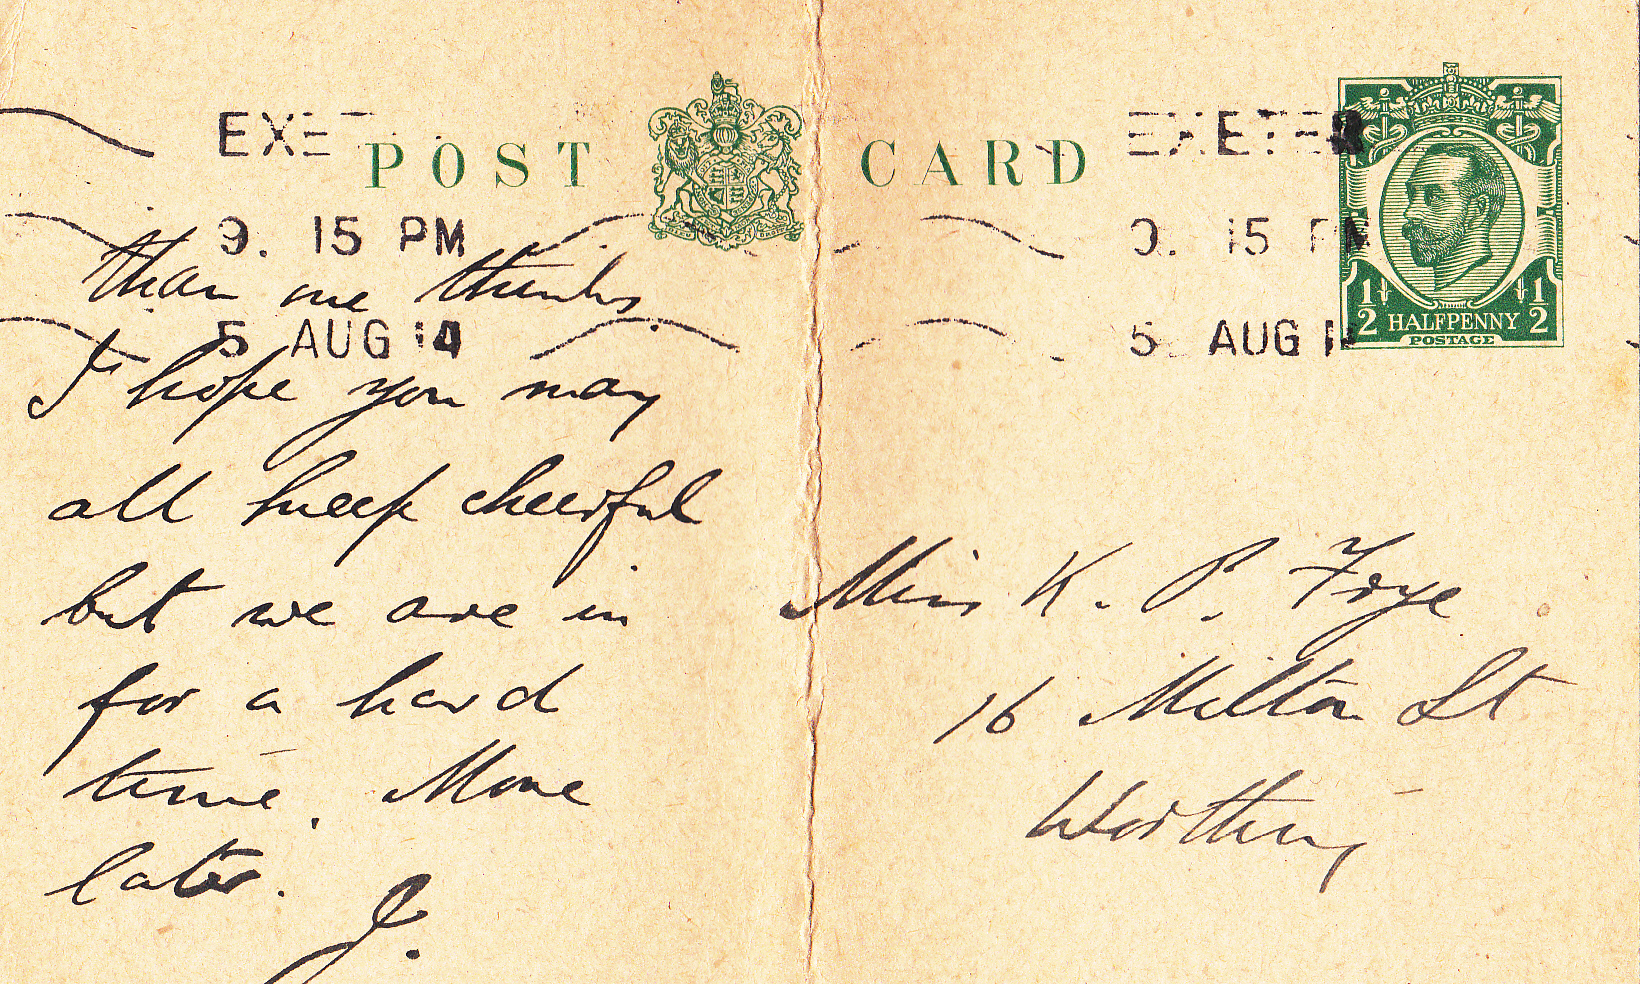 EXETER
POST CARD
9. 15 PM
5 AUG 14
than one thinks.
I hope you may
all keep cheerful
but we are in
for a hard
time. More
later. J.
EXETER
9. 15 PM
5 AUG 1
½ HALFPENNY ½
POSTAGE
Miss K. P. Frye
16 Milton St
Worthing